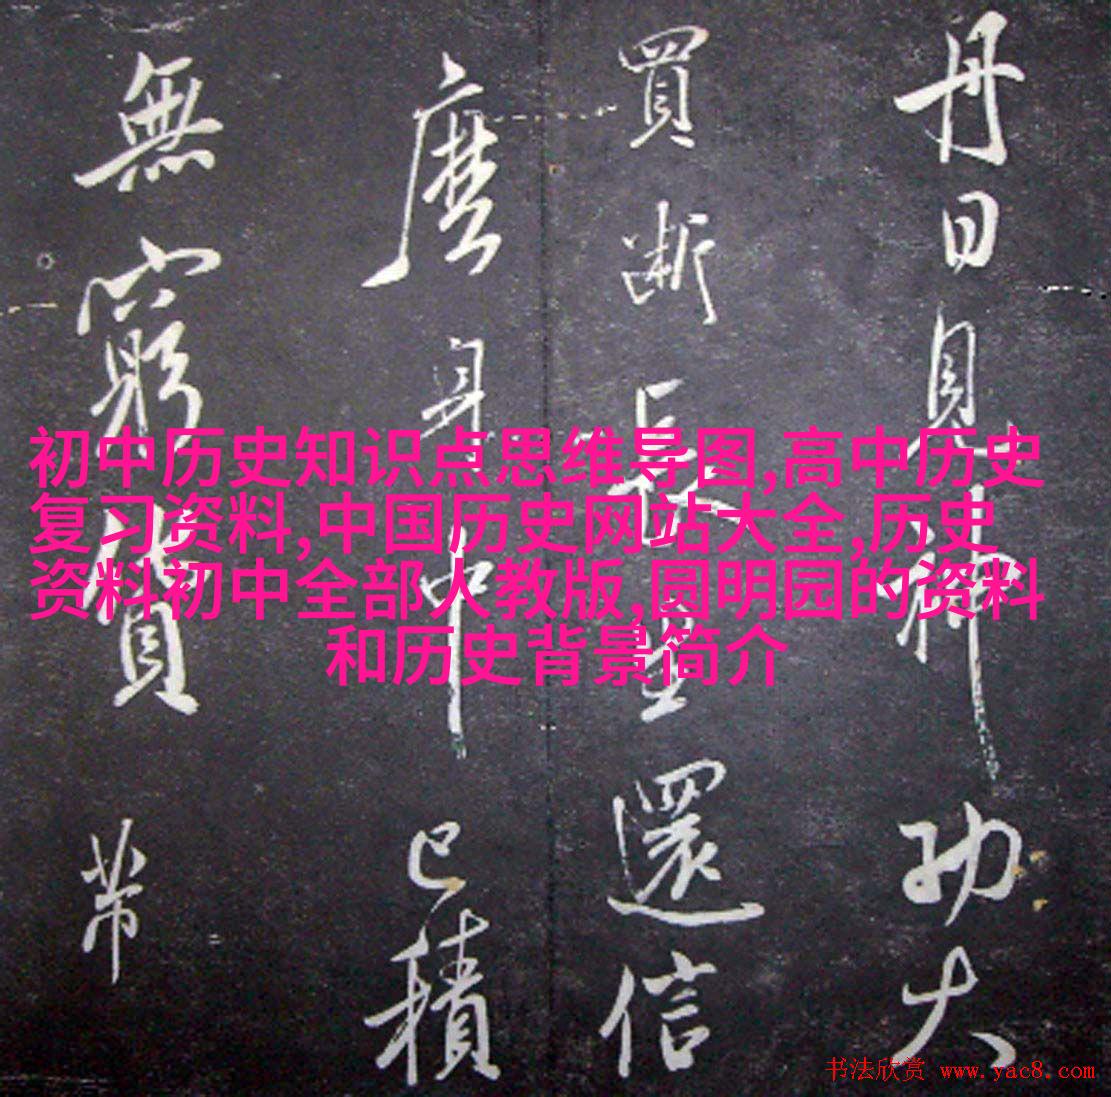 丹日見功大
買斷長還信
麼身中已積
無窮貨帶
初中历史知识点思维导图,高中历史
复习资料,中国历史网站大全,历史
资料初中全部人教版,圆明园的资料
和历史背景简介
书法欣赏 www.yac8.com